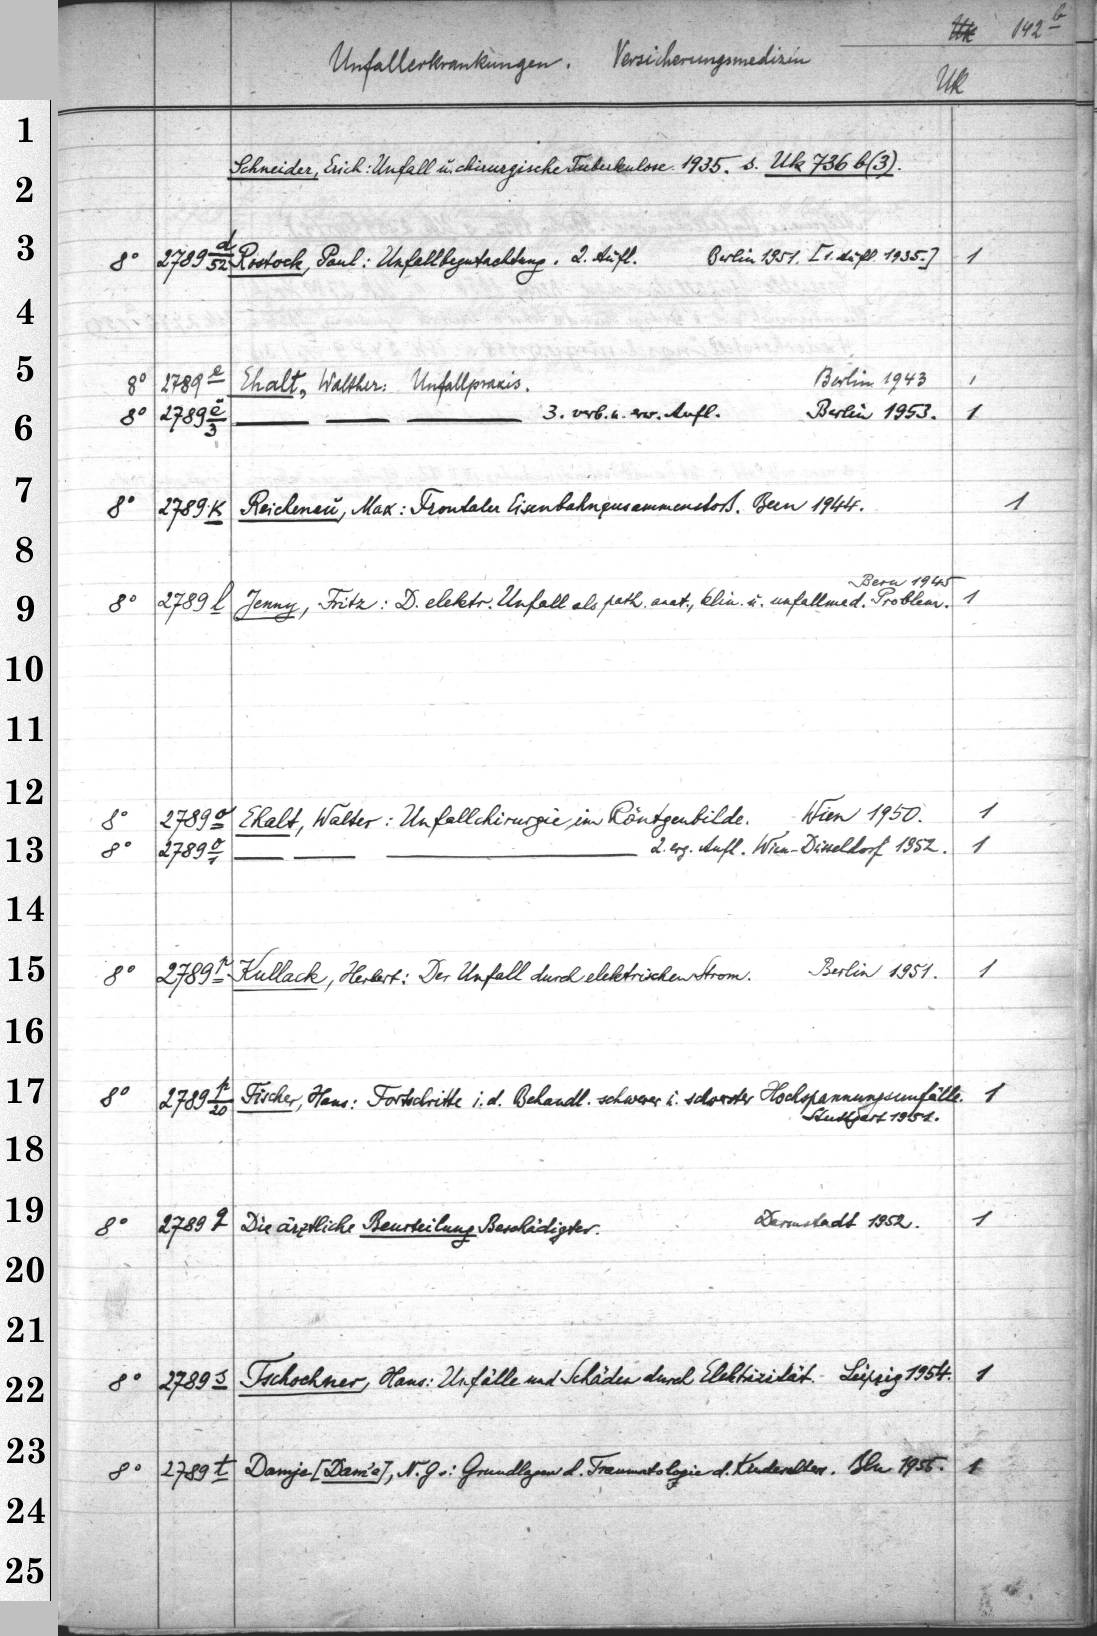 Uk 142 b
Unfallerkrankungen. Versicherungsmedizin
Uk
1
Schneider, Erich: Unfall u. chirurgische Tuberkulose. 1935. s. Uk 736 b(3).
2
3
8° 2789 d/52 Rostock, Paul: Unfallbegutachtung. 2. Aufl. Berlin 1951. [1. Aufl. 1935.] 1
4
5
8° 2789 e Ehalt, Walther: Unfallpraxis. Berlin 1943 1
8° 2789 e/3 — — — 3. verb. u. erw. Aufl. Berlin 1953. 1
6
7
8° 2789 k Reichenau, Max: Frontaler Eisenbahnzusammenstoß. Bern 1944. 1
8
Bern 1945
9
8° 2789 l Jenny, Fritz: D. elektr. Unfall als path. anat., klin. u. unfallmed. Problem. 1
10
11
12
8° 2789 o Ehalt, Walter: Unfallchirurgie im Röntgenbilde. Wien 1950. 1
13
8° 2789 o/1 — — — 2. erg. Aufl. Wien-Düsseldorf 1952. 1
14
15
8° 2789 p Kullack, Herbert: Der Unfall durch elektrischen Strom. Berlin 1951. 1
16
17
8° 2789 p/20 Fischer, Hans: Fortschritte i. d. Behandl. schwerer u. schwerster Hochspannungsunfälle. 1
Stuttgart 1951.
18
19
8° 2789 q Die ärztliche Beurteilung Beschädigter. Darmstadt 1952. 1
20
21
22
8° 2789 s Tschochner, Hans: Unfälle und Schäden durch Elektrizität. Leipzig 1954. 1
23
8° 2789 t Damje [Dam'e], N. G.: Grundlagen d. Traumatologie d. Kindesalters. Bln 1956. 1
24
25